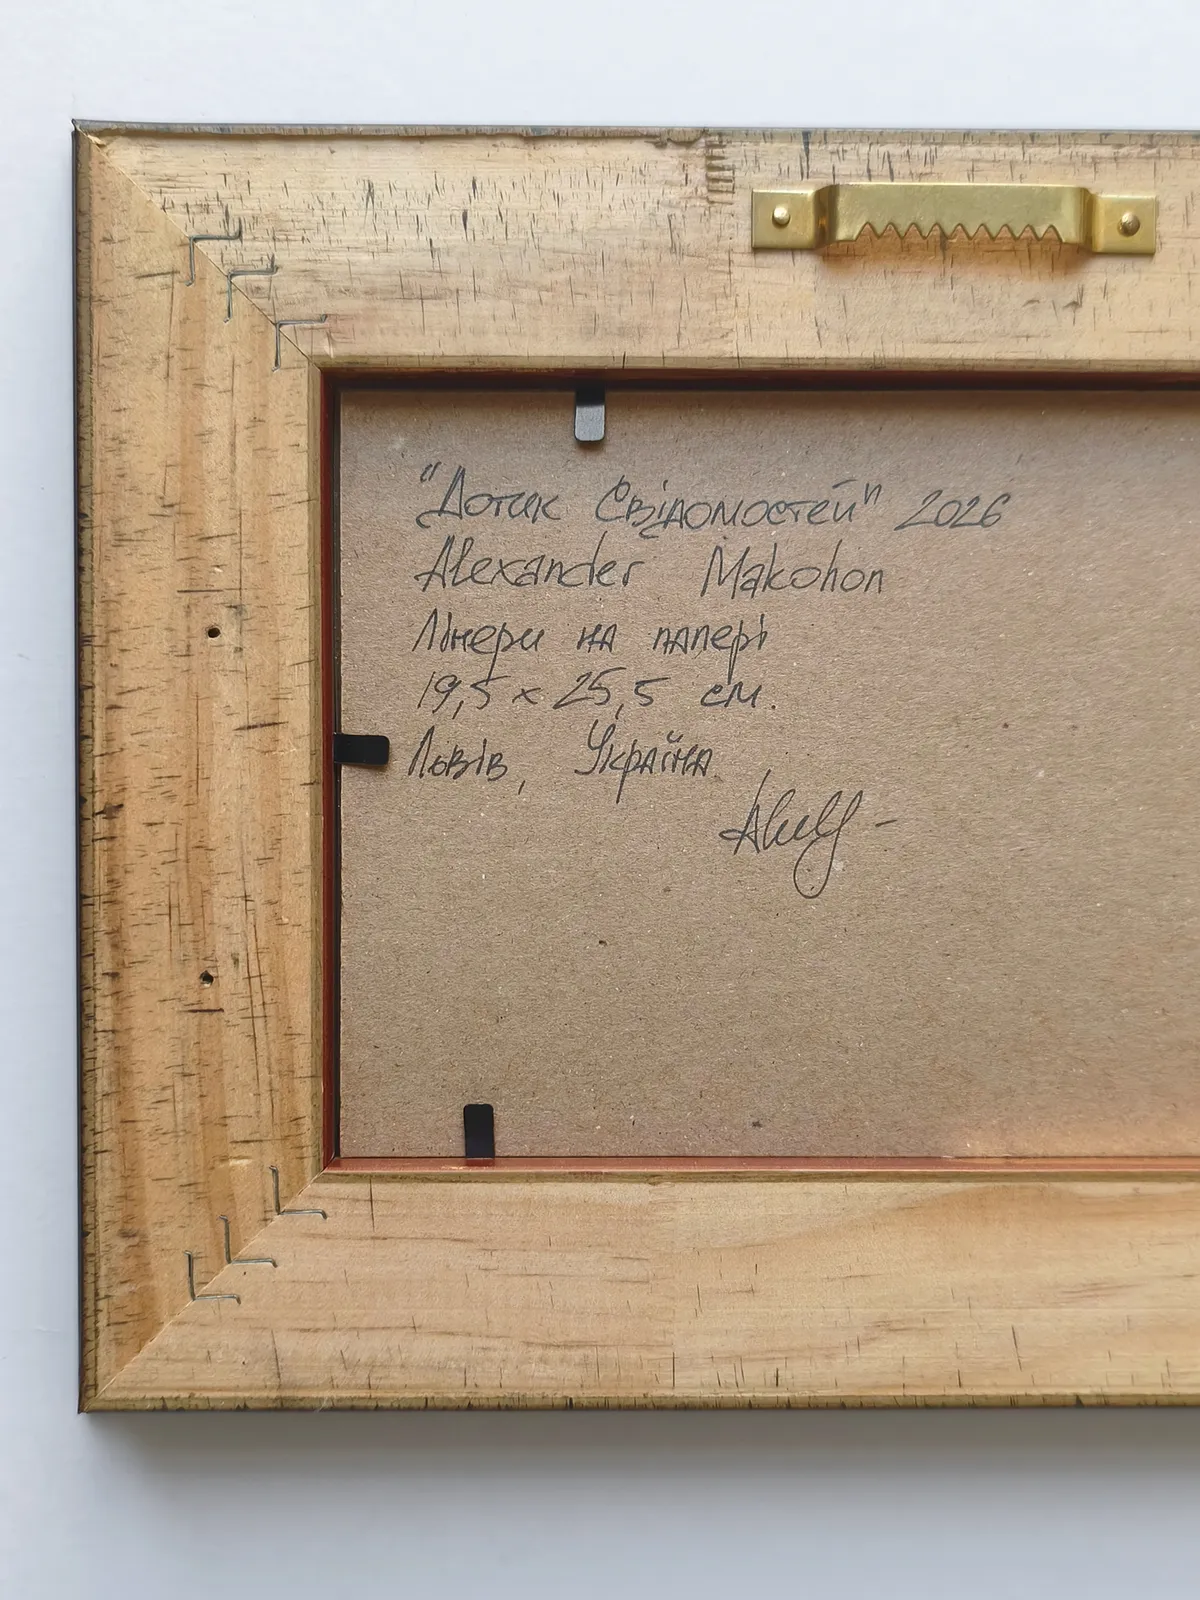 "Дотик Свідомостей" 2026
Alexander Makohon
Лінери на папері
19,5 x 25,5 см.
Львів, Україна